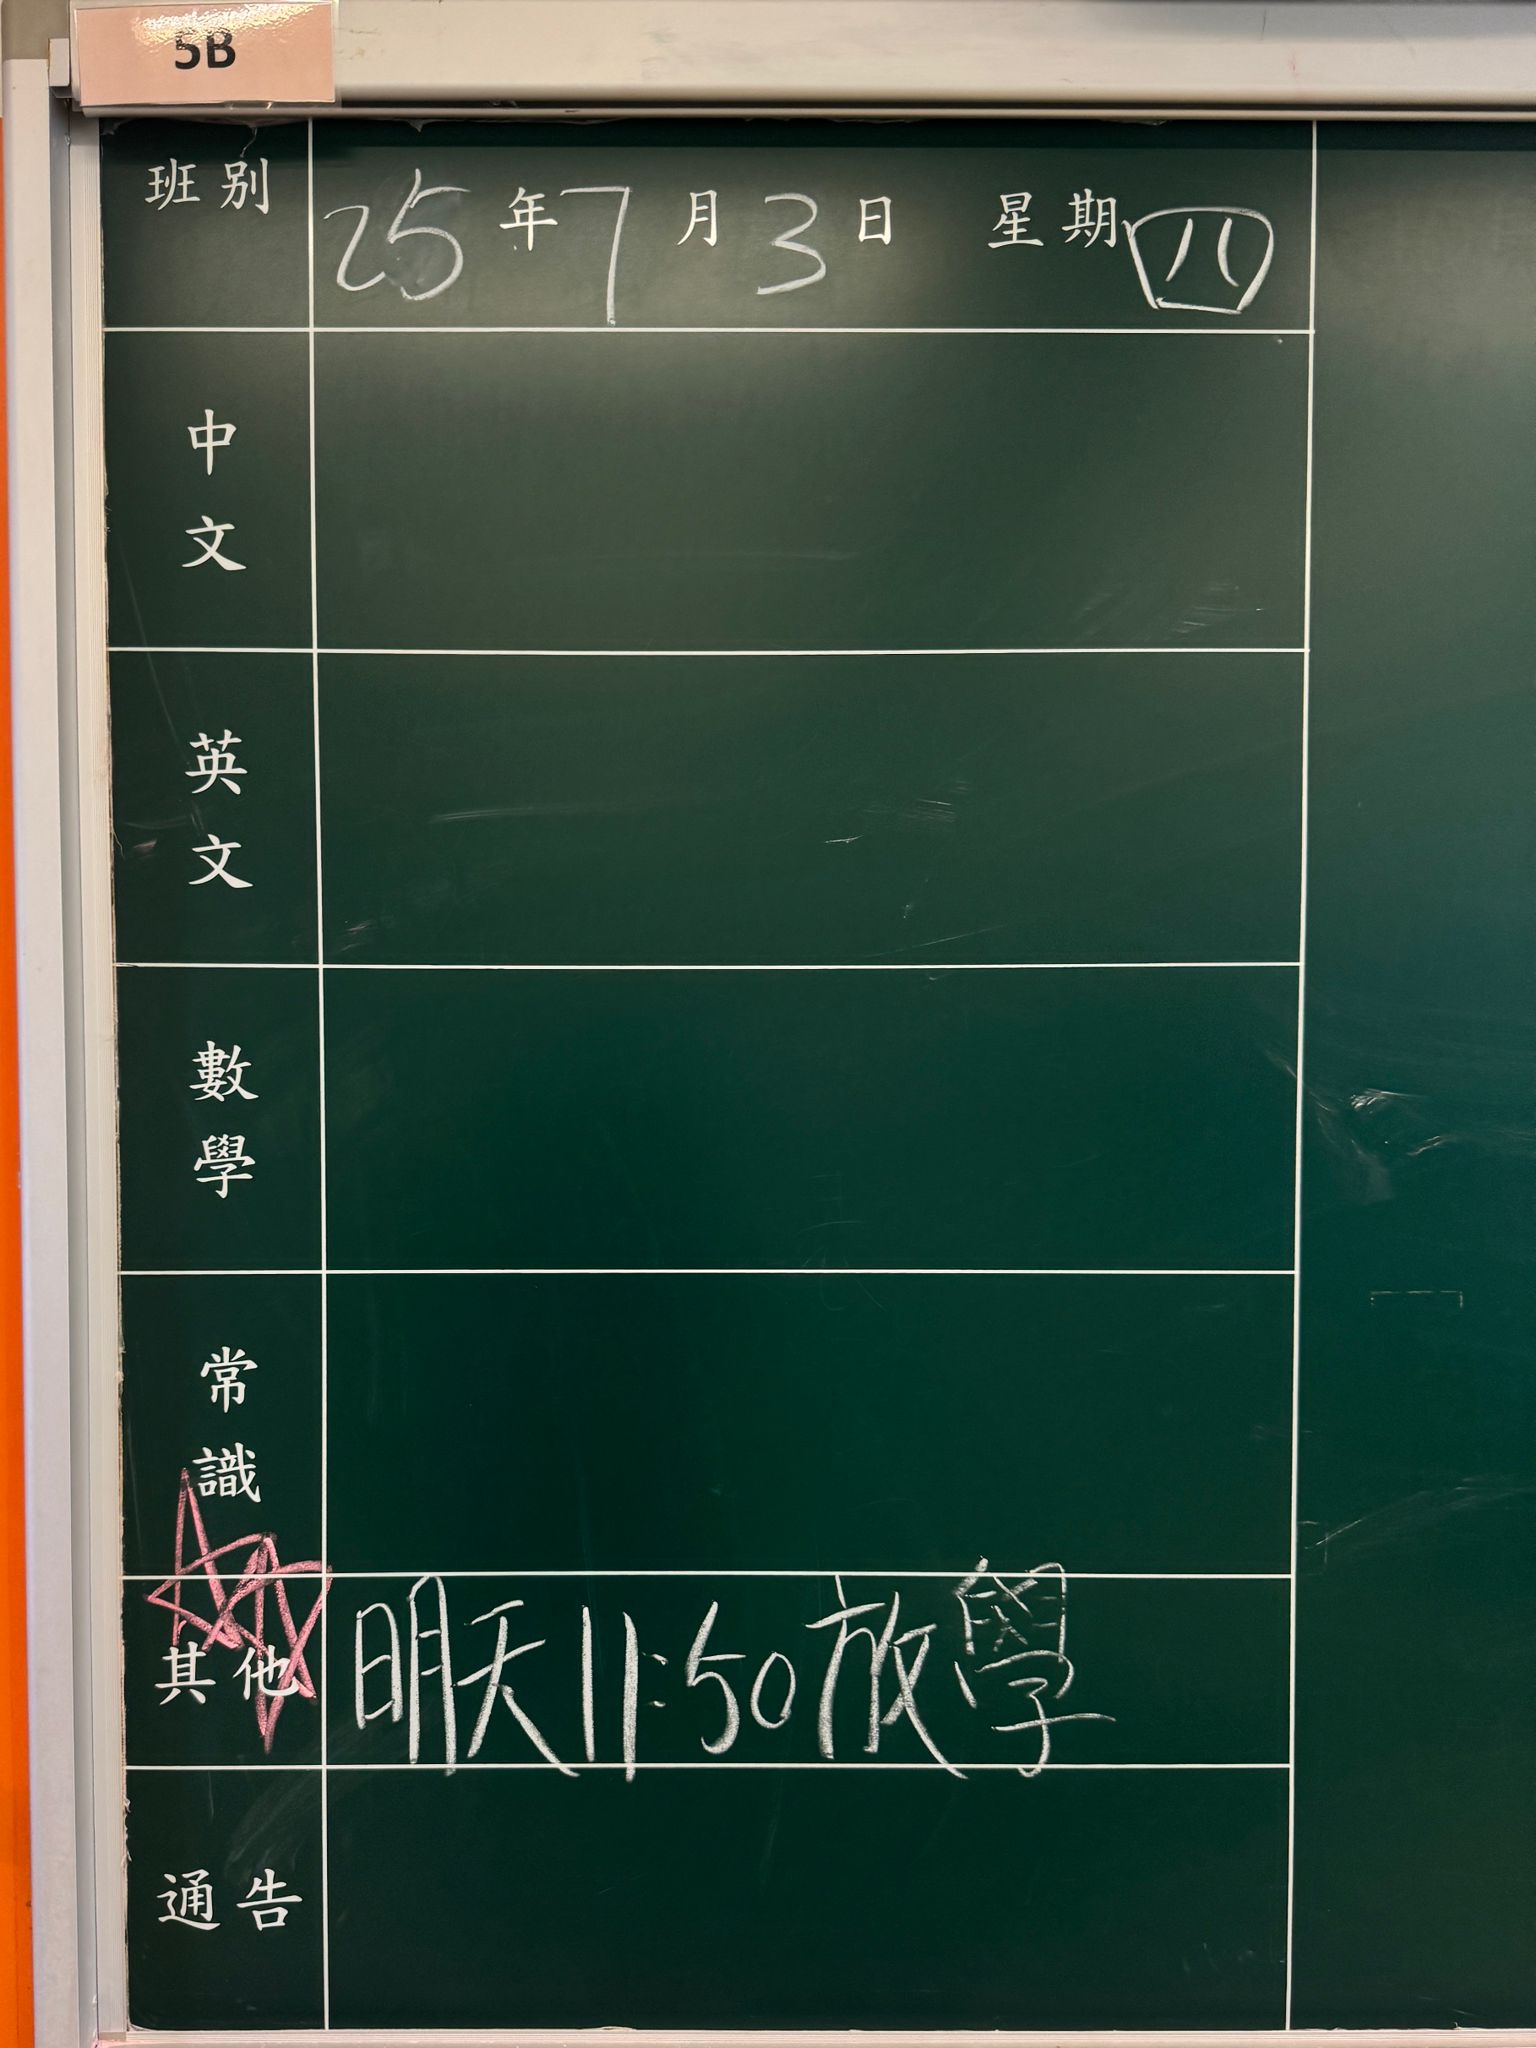 5B
班別 25年7月3日 星期四
中文
英文
數學
常識
其他 明天11:50放學
通告